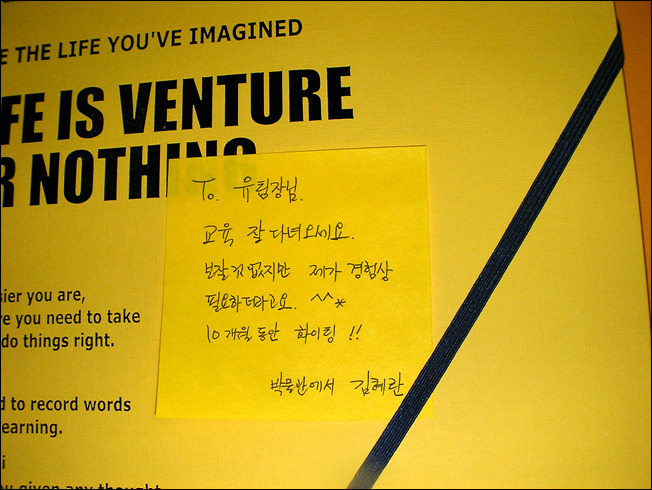 E THE LIFE YOU'VE IMAGINED
FE IS VENTURE
R NOTHING
To. 유팀장님.
교육 잘 다녀오세요.
보잘것 없지만 제가 경험상
필요하더라고요. ^^*
10개월 동안 화이팅 !!
박물반에서 김혜란
sier you are,
re you need to take
do things right.
d to record words
earning.
i
ou given any thought